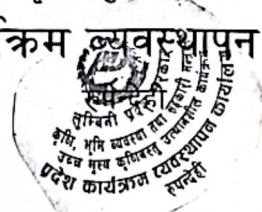 क्रम व्यवस्थापन
रूपन्देही
लुम्बिनी प्रदेश सरकार
कृषि, भूमि व्यवस्था तथा सहकारी
उच्च मूल्य कृषिवस्तु उत्थानशील कार्यक्रम
प्रदेश कार्यक्रम व्यवस्थापन कार्यालय
रुपन्देही